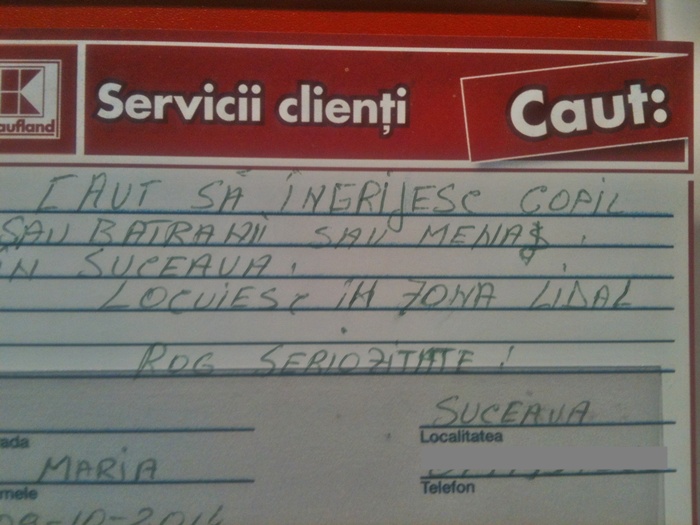 Kaufland
Servicii clienți
Caut:
CAUT SĂ ÎNGRIJESC COPIL
SAU BATRANII SAU MENAJ.
ÎN SUCEAVA.
LOCUIESC ÎN ZONA LIDAL
ROG SERIOZITATE !
SUCEAVA
ada
Localitatea
MARIA
mele
Telefon
09-10-2014